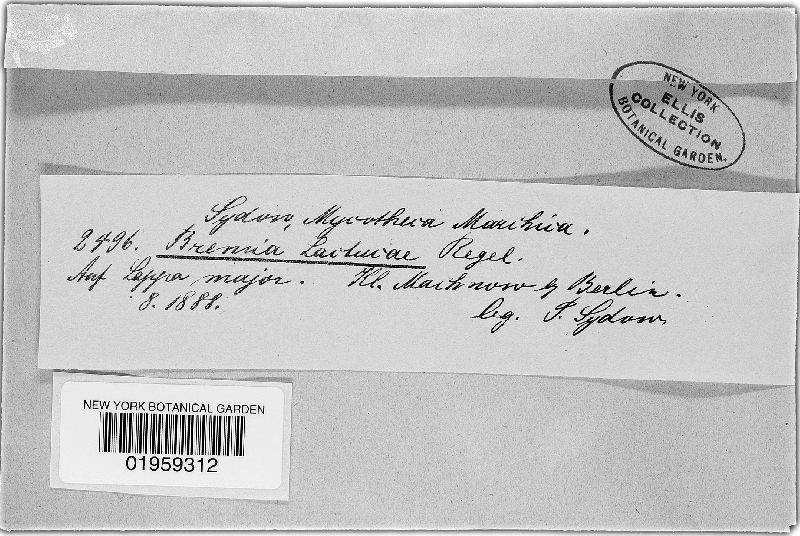 NEW YORK
ELLIS
COLLECTION
BOTANICAL GARDEN.
Sydow, Mycotheca Marchica.
2496. Bremia Lactucae Regel.
Auf Lappa major. Kl. Machnow b/ Berlin.
8. 1888.
leg. P. Sydow.
NEW YORK BOTANICAL GARDEN
01959312